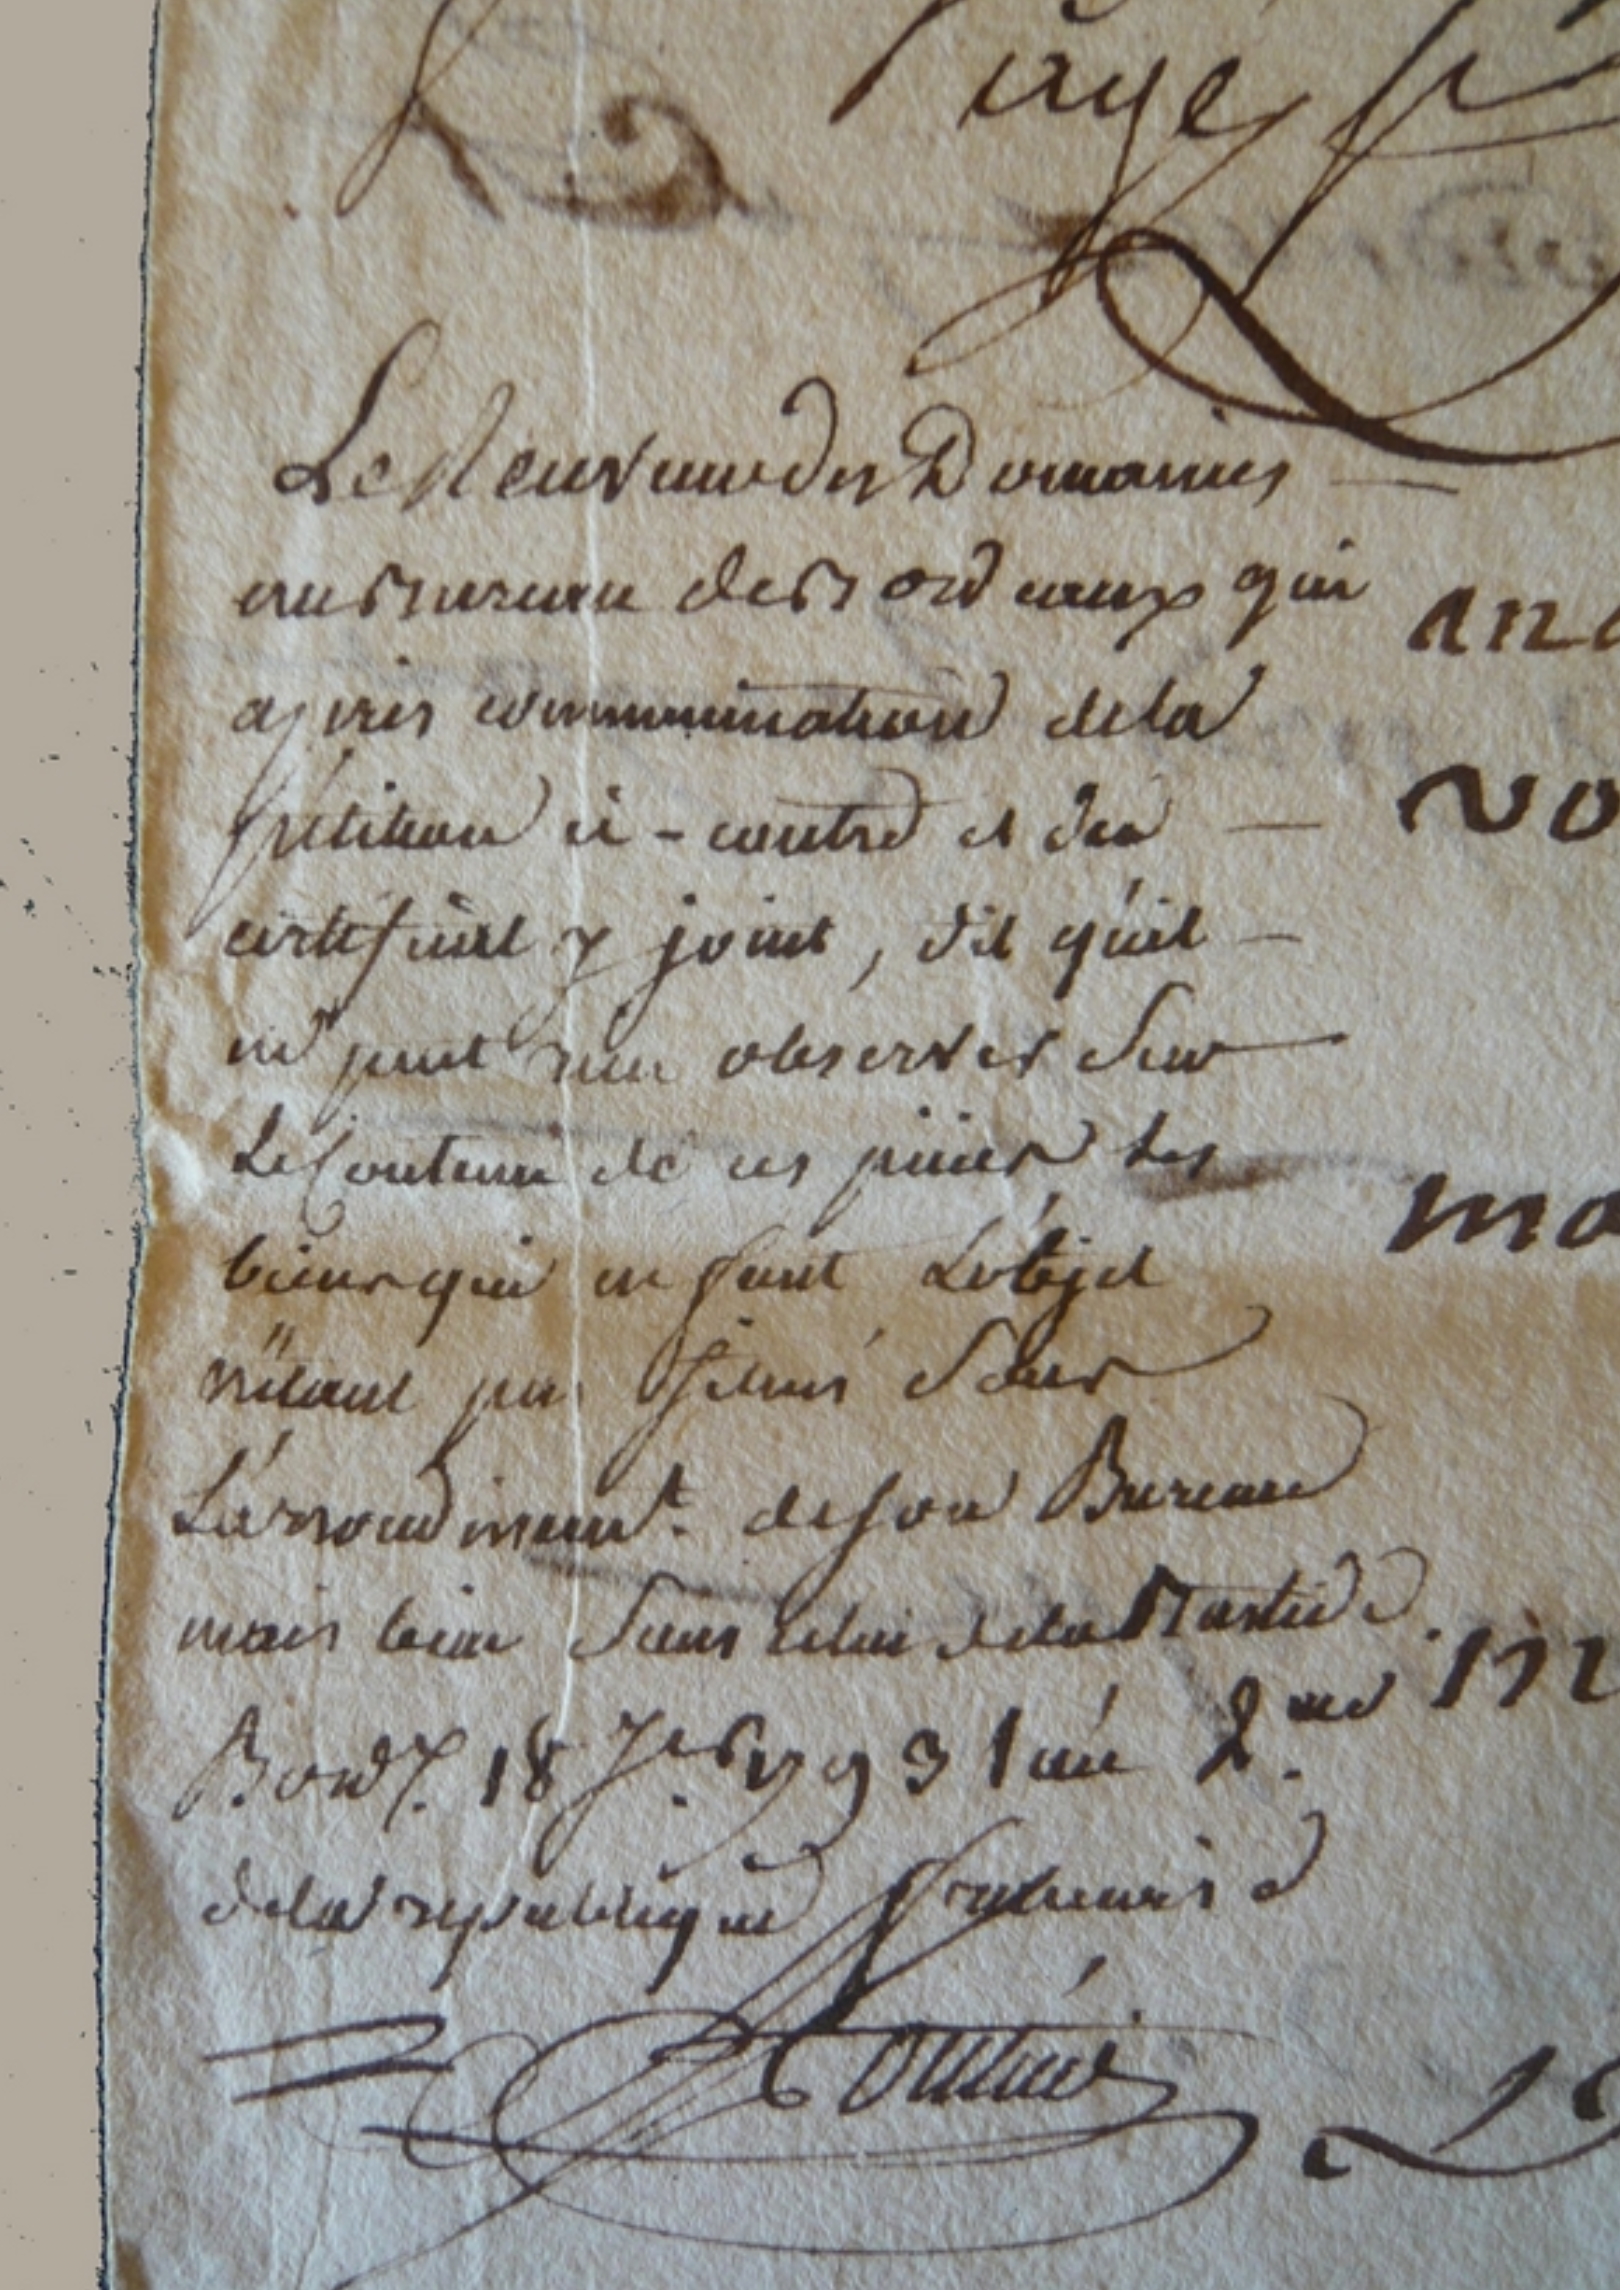 Le Receveur des Domaines
au Bureau de Bordeaux qui
après communication de la
pétition ci-contre et du
certificat y joint, dit qu'il
ne peut rien observer sur
Le Contenu de ces pièces Les
biens qui en font L'objet
n'étant pas situés dans
L'arrondissemt. de son Bureau
mais bien dans celui de la Bastide.
Bordx. 18 7bre 1793 l'an 2me
de la republique française